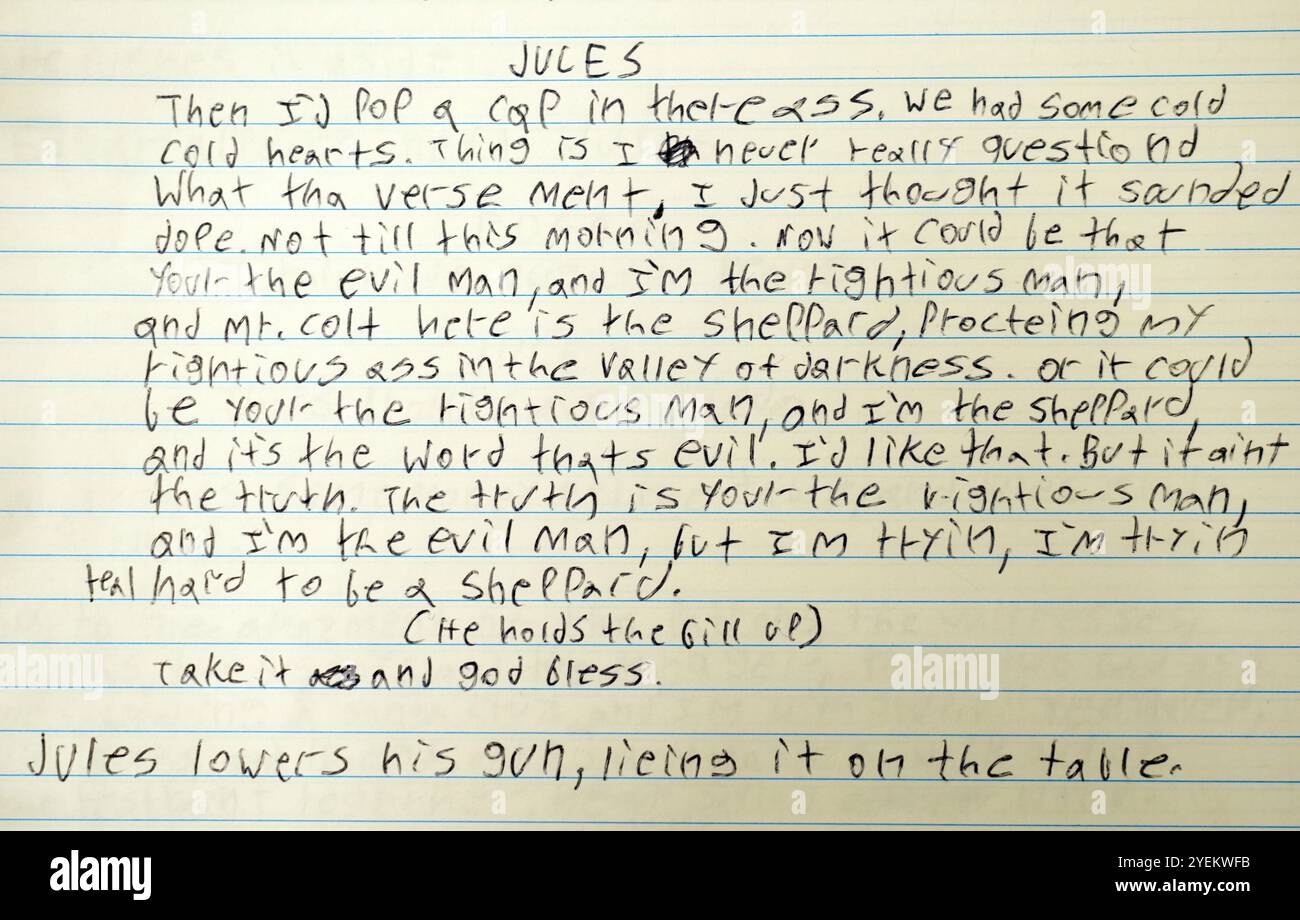 JULES
Then I'd pop a cap in there ass. We had some cold
cold hearts. Thing is I never really questiond
what tha verse ment, I just thought it sounded
dope. Not till this morning. Now it could be that
your the evil man, and I'm the rightious man,
and Mr. Colt here is the sheppard, procteing my
rightious ass in the valley of darkness. or it could
be your the rightious man, and I'm the sheppard,
and it's the world thats evil. I'd like that. But it aint
the truth. The truth is your the rightious man,
and I'm the evil man, but I'm tryin, I'm tryin
real hard to be a sheppard.
(He holds the bill up)
Take it and god bless.
Jules lowers his gun, lieing it on the table.
alamy
Image ID: 2YEKWFB
www.alamy.com